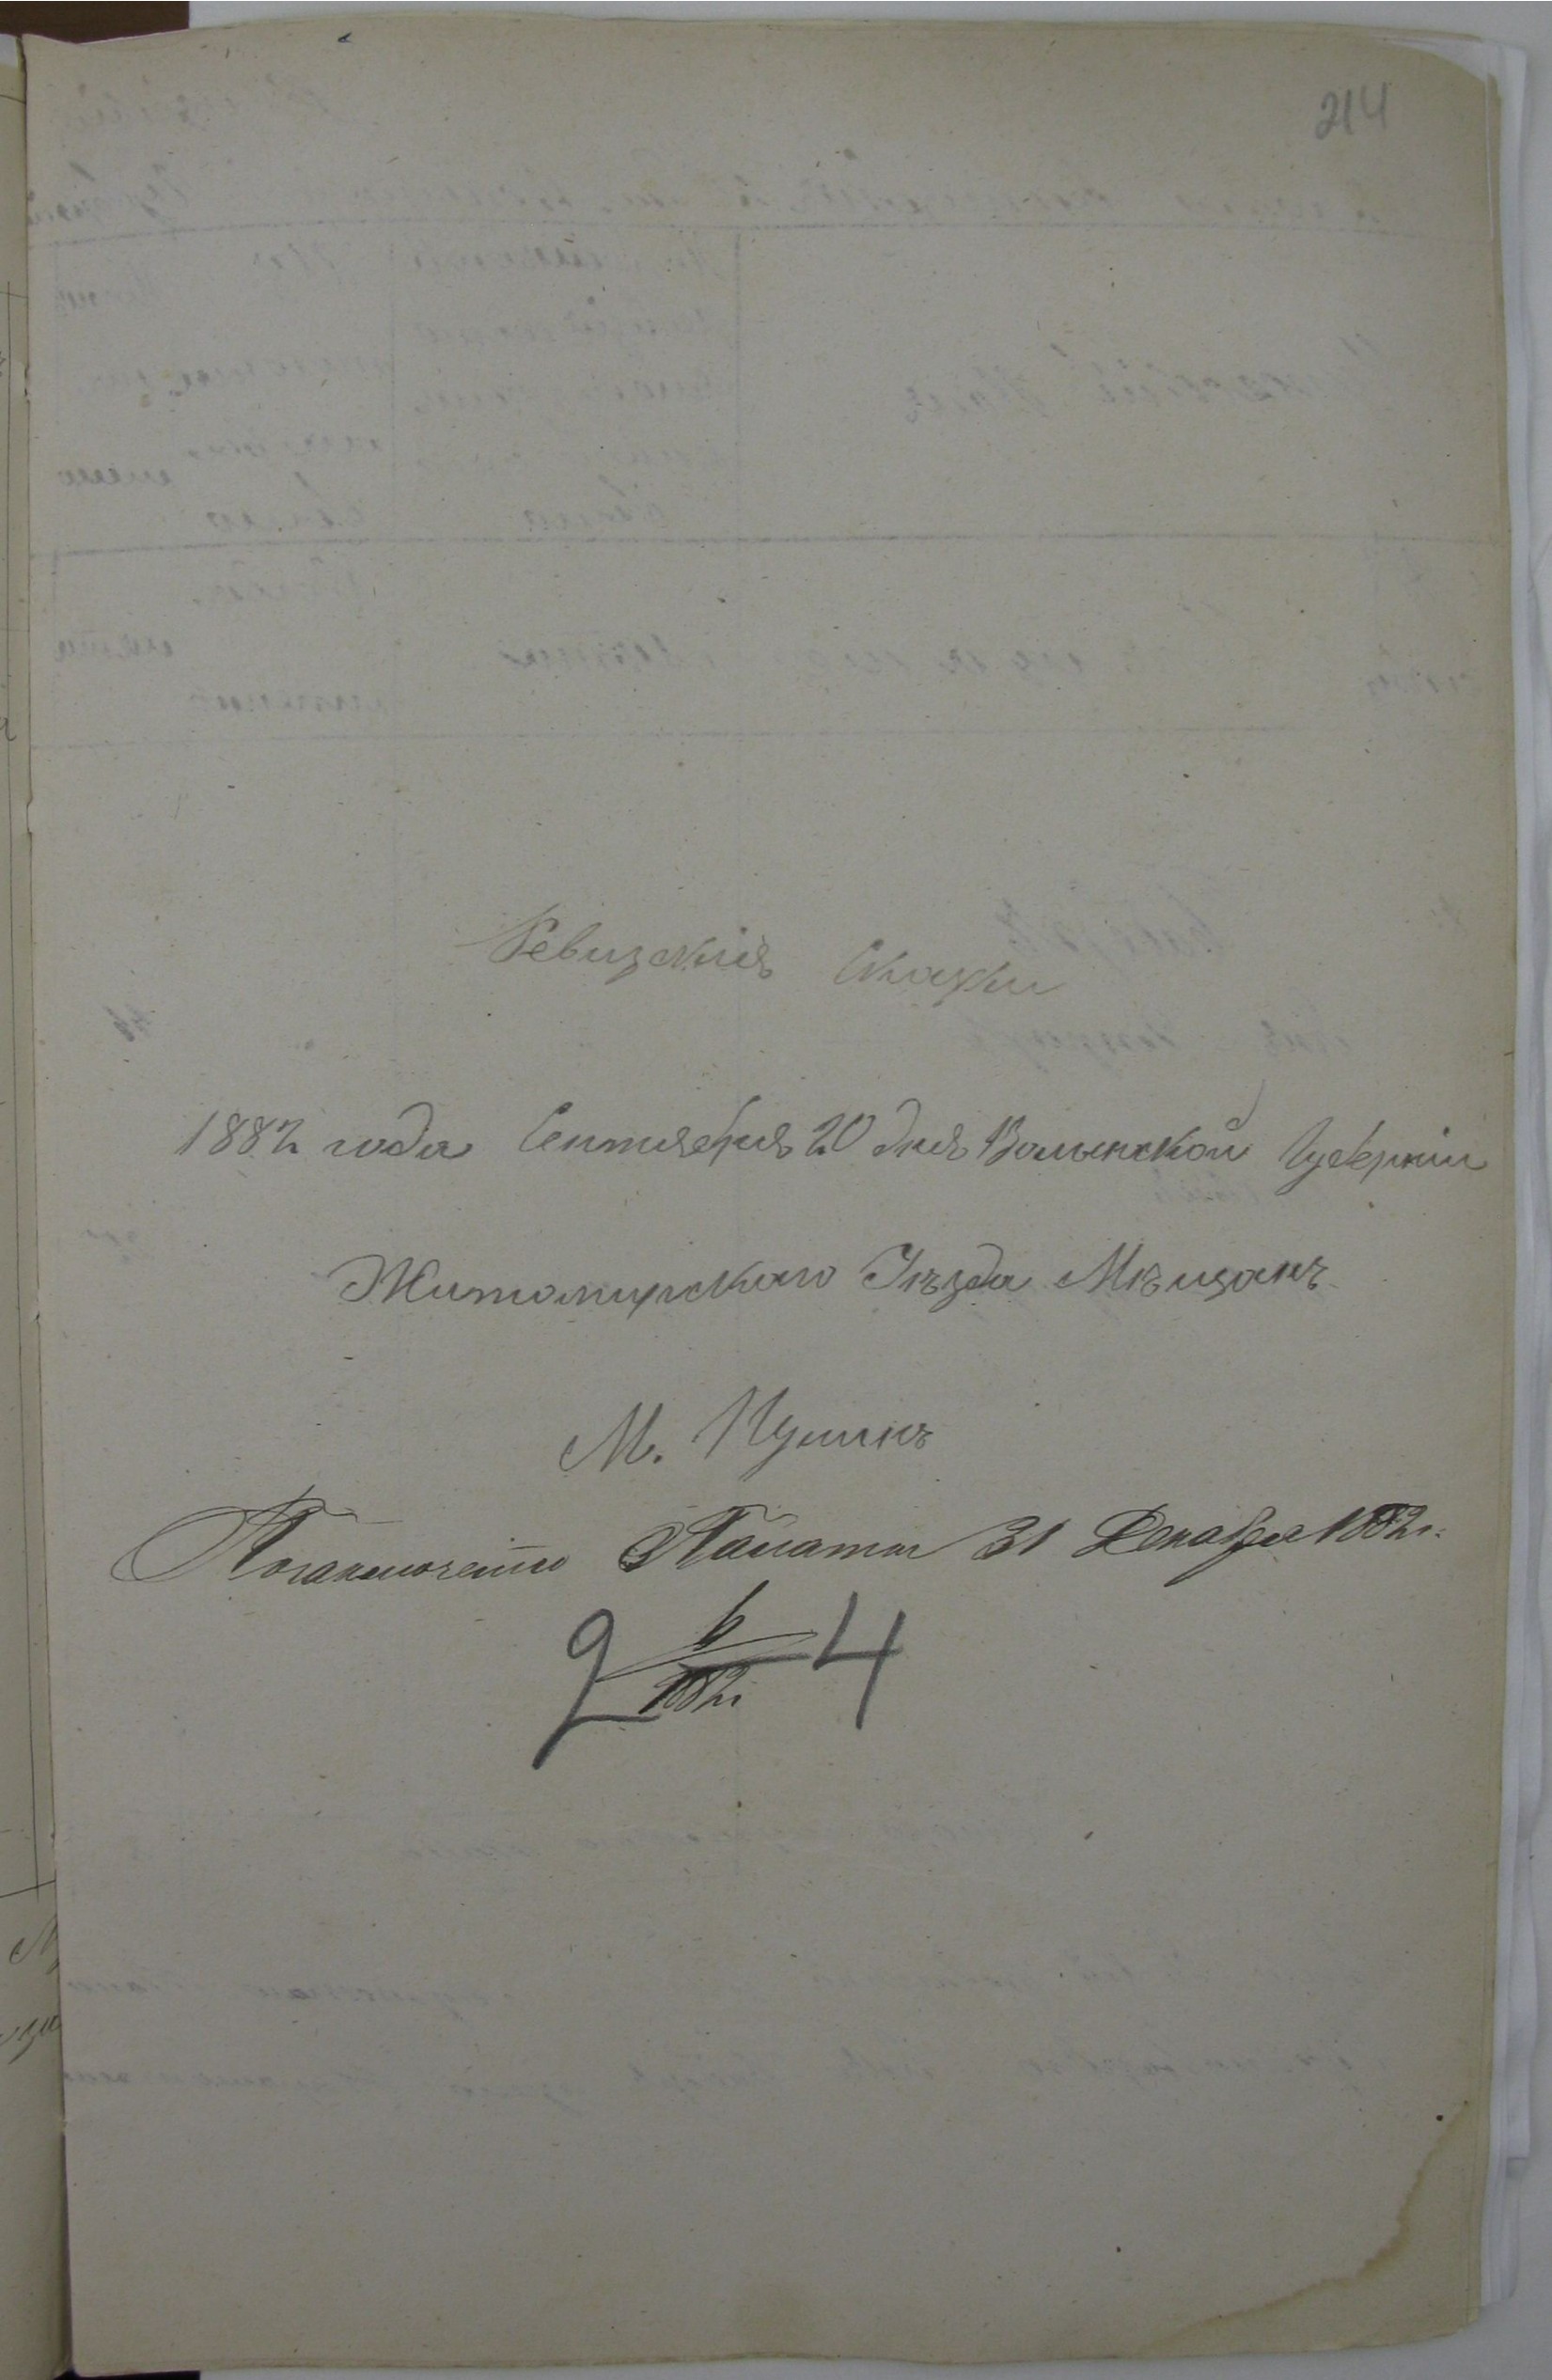 214
Ревизскія Сказки
1882 года Сентября 20 дня Волынской Губерніи
Житомирскаго Уѣзда Мѣщанъ
М. Пулинъ
По заключенію Палаты 31 Декабря 1882 г.
6
1882 г.
2 4